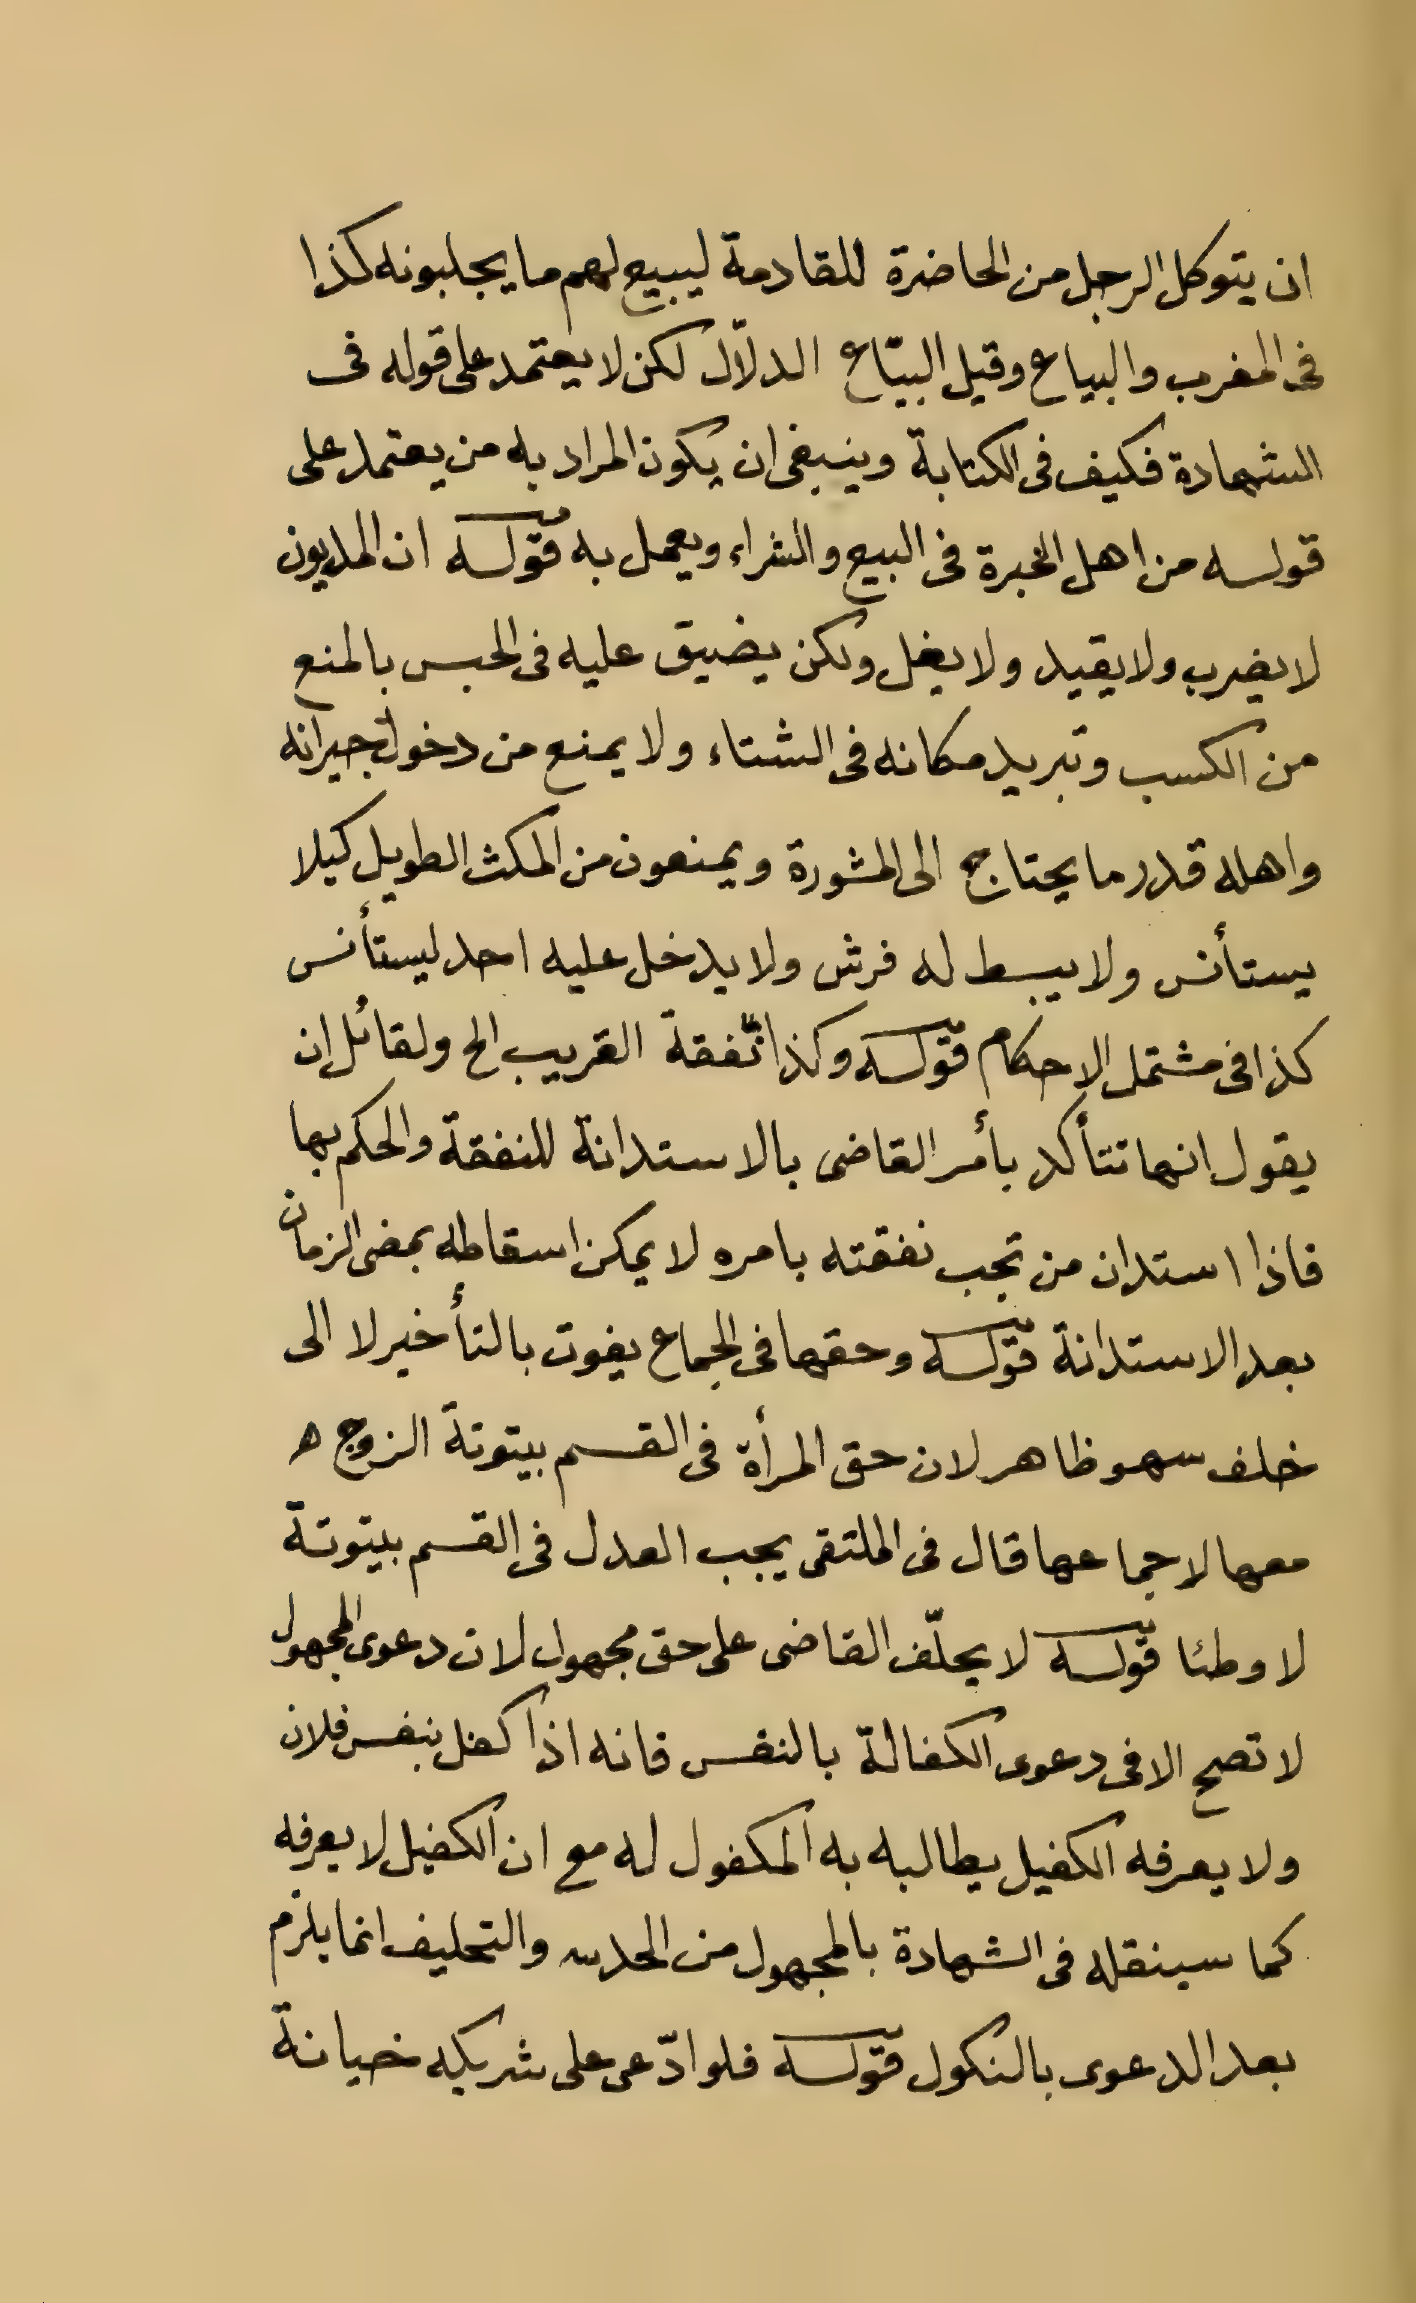 ان يتوكل الرجل من الحاضرة للقادمة ليبيع لهم ما يجلبونه كذا
فى المغرب والبياع وقيل البيّاع الدلاّل لكن لا يعتمد على قوله فى
الشهادة فكيف فى الكتابة وينبغى ان يكون المراد به من يعتمد على
قوله من اهل الخبرة فى البيع والشراء ويعمل به قوله ان المديون
لا يضرب ولا يقيد ولا يغل ولكن يضيق عليه فى الحبس بالمنع
من الكسب وتبريد مكانه فى الشتاء ولا يمنع من دخول جيرانه
واهله قدر ما يحتاج الى المشورة ويمنعون من المكث الطويل كيلا
يستأنس ولا يبسط له فرش ولا يدخل عليه احد ليستأنس
كذا فى مشتمل الاحكام قوله وكذا نفقة القريب الح ولقائل ان
يقول انها تتأكد بأمر القاضى بالاستدانة للنفقة والحكم بها
فاذا استدان من تجب نفقته بامره لا يمكن اسقاطه بمضى الزمان
بعد الاستدانة قوله وحقها فى الجماع يفوت بالتأخير لا الى
خلف سهو ظاهر لان حق المرأة فى القسم بيتوتة الزوج ه
معها لا جماعها قال فى الملتقى يجب العدل فى القسم بيتوتة
لا وطئا قوله لا يحلّف القاضى على حق مجهول لان دعوى المجهول
لا تصح الا فى دعوى الكفالة بالنفس فانه اذا كفل بنفس فلان
ولا يعرفه الكفيل يطالبه به المكفول له مع ان الكفيل لا يعرفه
كما سينقله فى الشهادة بالمجهول من الحدس والتحليف انما يلزم
بعد الدعوى بالنكول قوله فلو ادّعى على شريكه خيانة